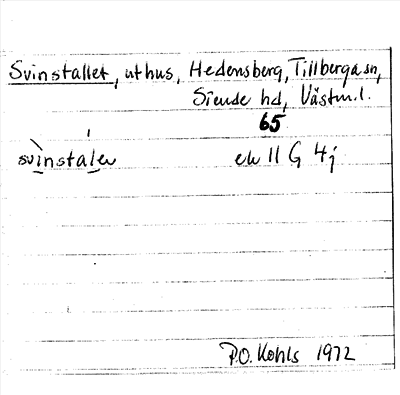 Svinstallet, uthus, Hedensberg, Tillberga sn,
Siende hd, Västm.l.
65
svìnstalev ek 11 G 4j
P.O. Kohls 1972